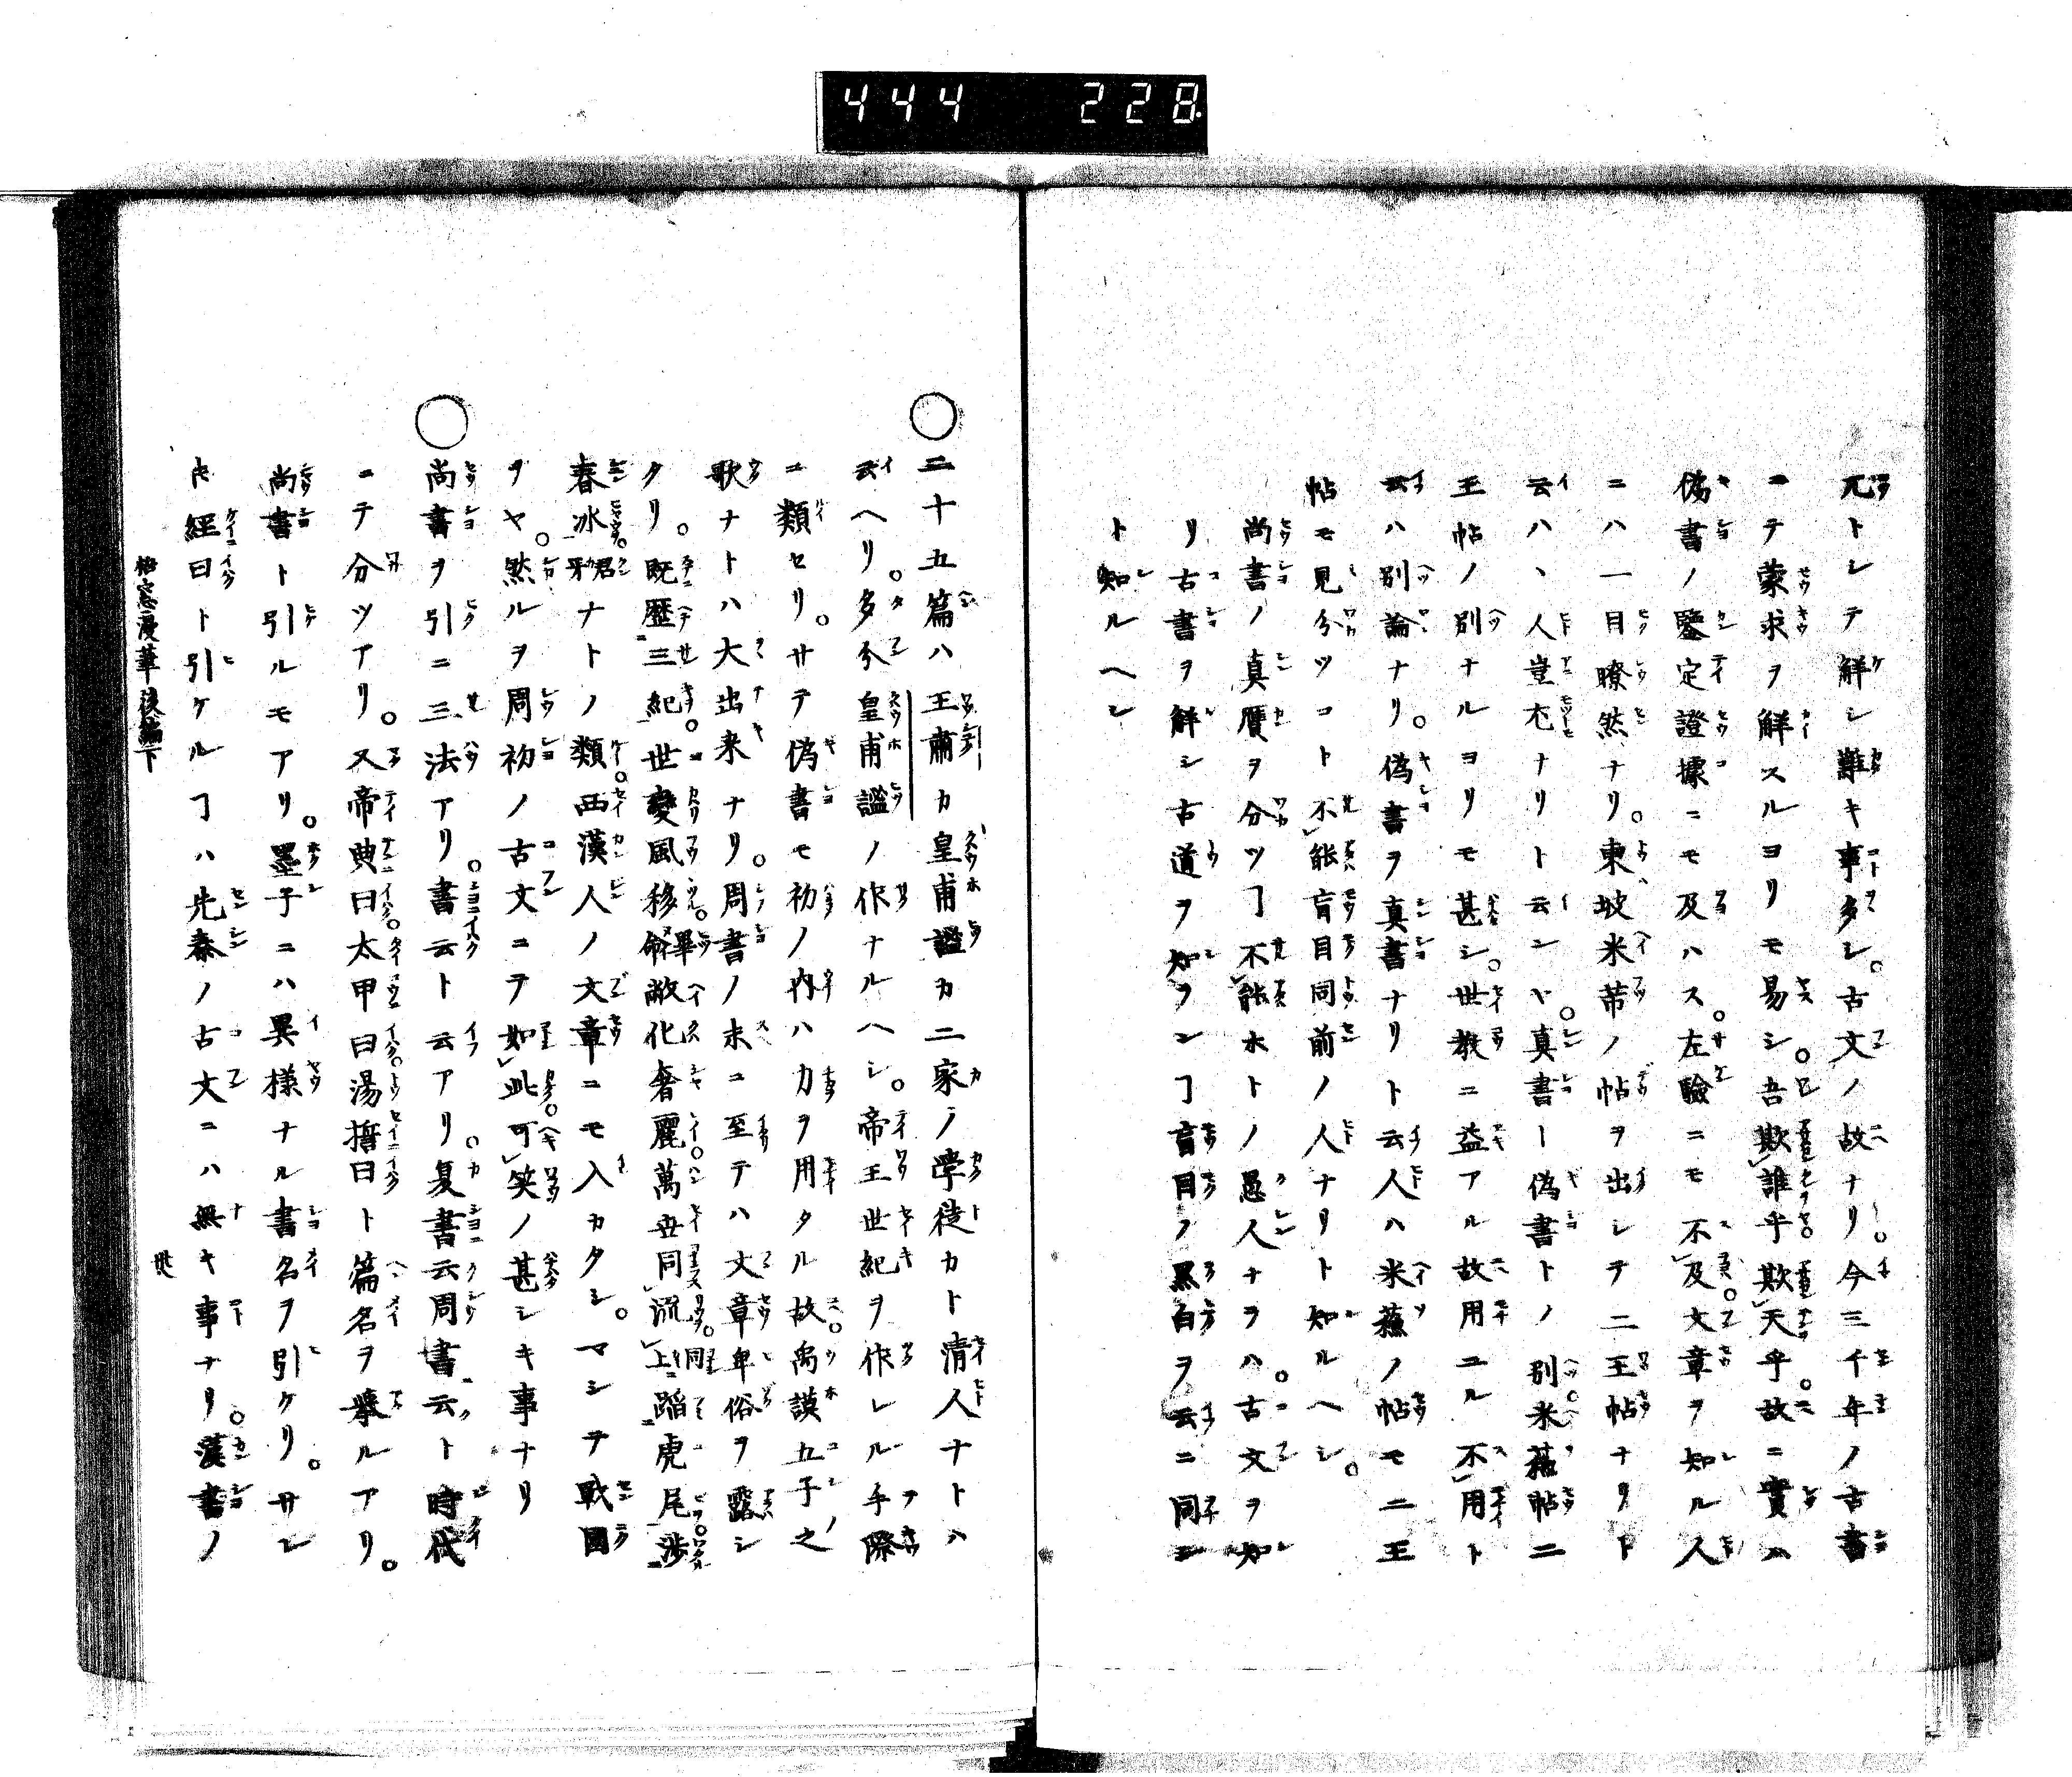 444 228
兀トシテ解シ難キ事多シ。古文ノ故ナリ。今三千年ノ古書
ニテ蒙求ヲ解スルヨリモ易シ。吾欺誰乎欺天乎。故ニ實ハ
偽書ノ鑒定證據ニモ及ハス。左驗ニモ不及。文章ヲ知ル人
ニハ一目瞭然ナリ。東坡米芾ノ帖ヲ出シテ二王帖ナリト
云ハヽ人豈尤ナリト云ンヤ。真書ー偽書トノ別。米蘓帖二
王帖ノ別ナルヨリモ甚シ。世教ニ益アル故用ユル不用ト
云ハ別論ナリ。偽書ヲ真書ナリト云人ハ米蘓ノ帖モ二王
帖モ見分ツコト不能盲目同前ノ人ナリト知ルヘシ。
尚書ノ真贋ヲ分ツヿ不能ホトノ愚人ナヲハ。古文ヲ知
リ古書ヲ解シ古道ヲ知ランヿ盲目ノ黒白ヲ云ニ同シ
ト知ルヘシ
○二十五篇ハ王肅カ皇甫謐カ二家ノ學徒カト清人ナトハ
云ヘリ。多分皇甫謐ノ作ナルヘシ。帝王世紀ヲ作レル手際
ニ類セリ。サテ偽書モ初ノ内ハ力ヲ用タル故。禹謨五子之
歌ナトハ大出来ナリ。周書ノ末ニ至テハ文章卑俗ヲ露シ
タリ。既歴三紀。世變風移。畢命敝化奢麗。萬世同流。同上蹈虎尾。渉
春冰。君牙ナトノ類。西漢人ノ文章ニモ入カタシ。マシテ戰國
ヲヤ。然ルヲ周初ノ古文ニテ如此。可笑ノ甚シキ事ナリ
○尚書ヲ引ニ三法アリ。書云ト云アリ。夏書云周書云ト時代
ニテ分ツアリ。又帝典曰。太甲曰。湯誓曰ト篇名ヲ擧ルアリ。
尚書ト引ルモアリ。墨子ニハ異様ナル書名ヲ引ケリ。サレ
𪜈經曰ト引ケルヿハ先秦ノ古文ニハ無キ事ナリ。漢書ノ
梧窓漫筆後編下